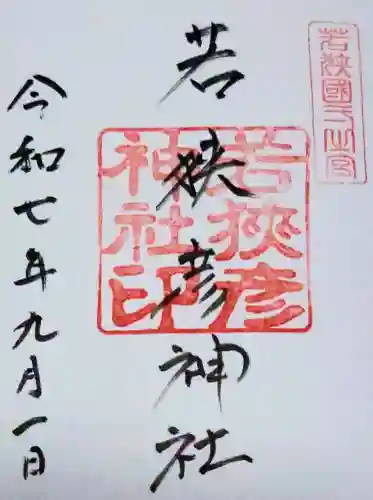 若狹國一之宮
若狹彦神社
若狹彦
神社印
令和七年九月一日